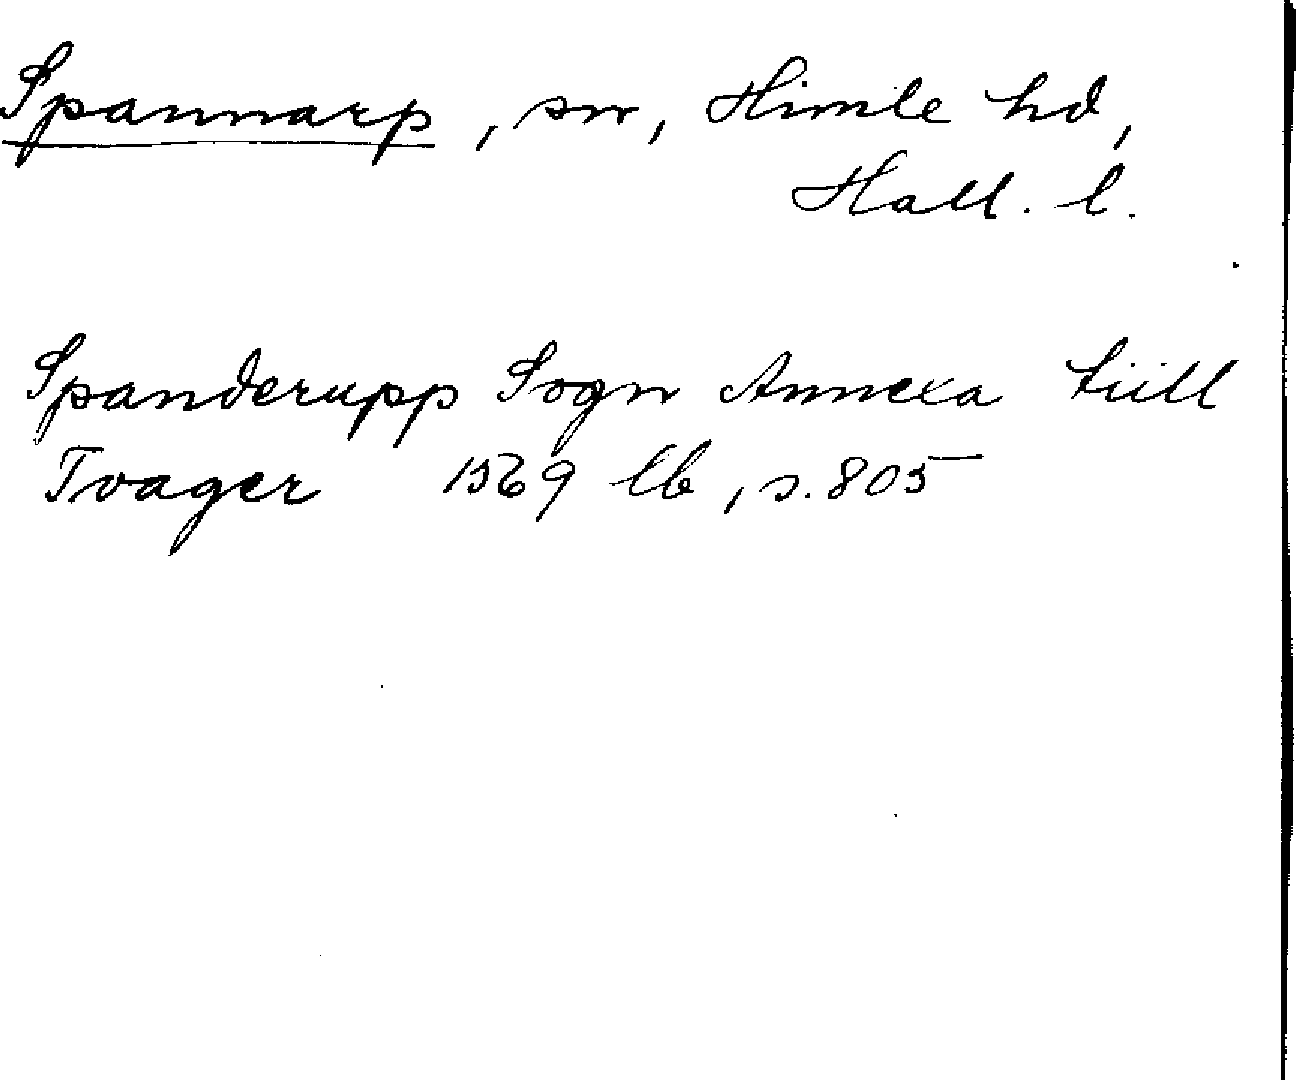 Spannarp, sn, Himle hd,
Hall. l.
Spanderupp Sogn Annexa tiill
Tvager 1569 lb, s. 805